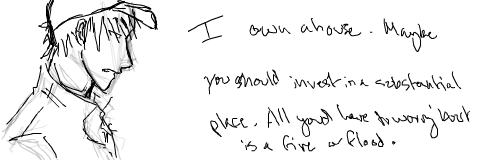 I own a house. Maybe
you should invest in a substantial
place. All you'd have to worry 'bout
is a fire or flood.